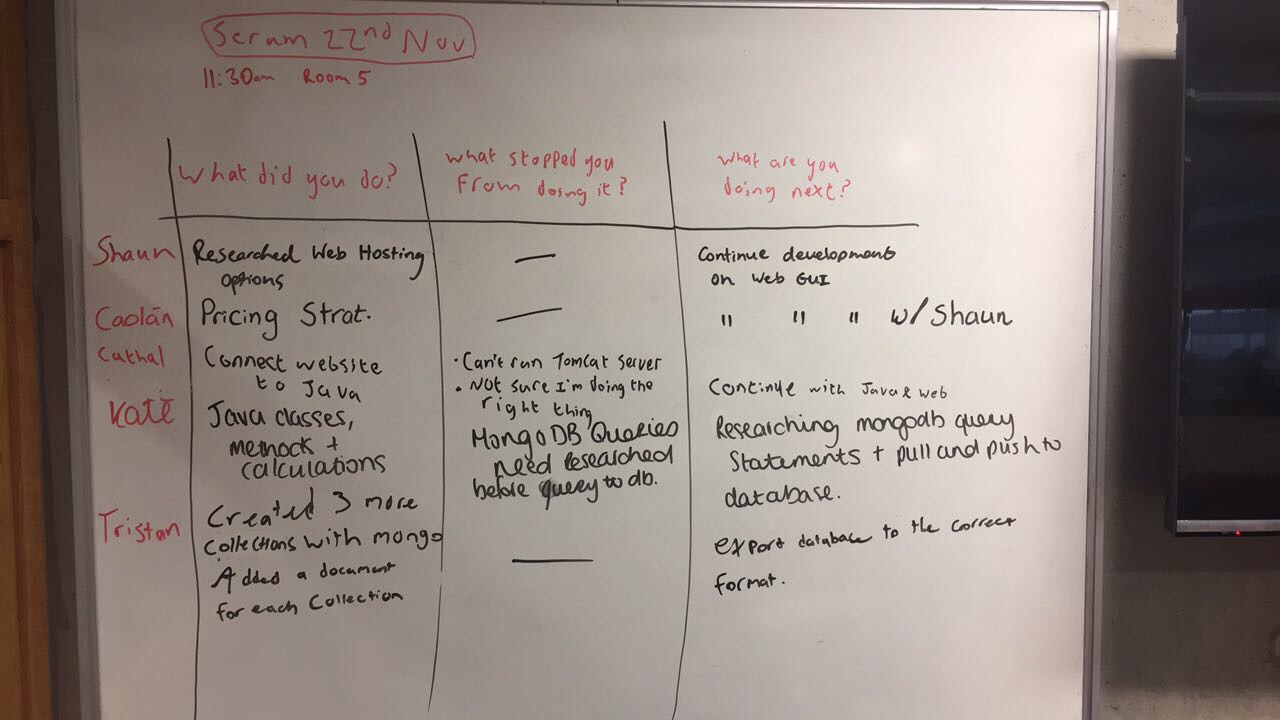 Scrum 22nd Nov
11:30am Room 5
What did you do?
What stopped you
From doing it?
What are you
doing next?
Shaun
Researched Web Hosting
options
—
Continue development
on Web GUI
Caolán
Pricing Strat.
—
" " " w/ Shaun
Cathal
Connect website
to Java
• Can't run Tomcat Server
• Not sure I'm doing the
right thing
Continue with Java & web
Kate
Java classes,
methods +
calculations
MongoDB Queries
need researched
before query to db.
Researching mongodb query
Statements + pull and push to
database.
Tristan
Created 3 more
Collections with mongo
Added a document
for each Collection
—
export database to the correct
format.